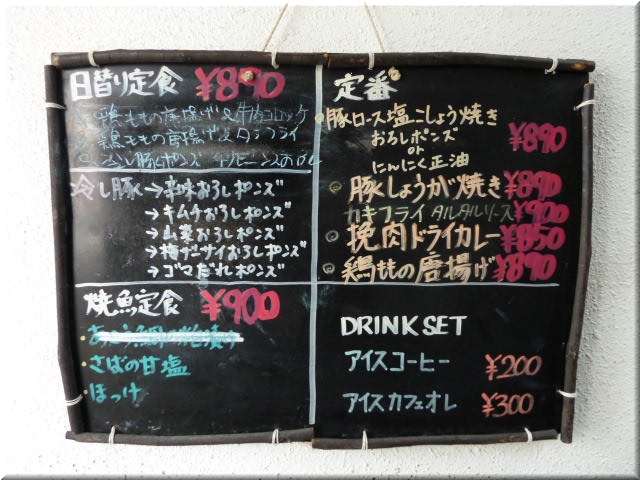 日替り定食 ¥890
鶏ももの唐揚げ&牛肉コロッケ
鶏ももの唐揚げ&
冷し豚 → 辛味おろしポンズ
→ キムチおろしポンズ
→ 山菜おろしポンズ
→ おろしポンズ
→ ゴマだれポンズ
焼魚定食 ¥900
・さばの甘塩
・ほっけ
定番
豚ロース塩こしょう焼き ¥890
おろしポンズ
or
にんにく正油
豚しょうが焼き ¥890
カキフライ タルタルソース ¥900
挽肉ドライカレー ¥850
鶏ももの唐揚げ ¥890
DRINK SET
アイスコーヒー ¥200
アイスカフェオレ ¥300